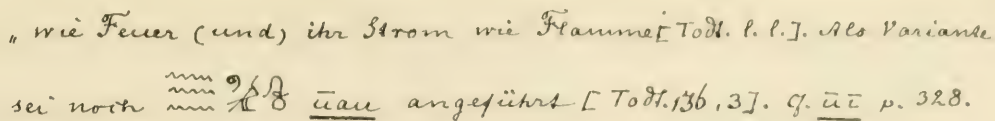 „ wie Feuer (und) ihr Strom wie Flamme [Todt. l. l.]. Als Variante
sei noch ūau angeführt [Todt. 136, 3]. Cf. ūī p. 328.